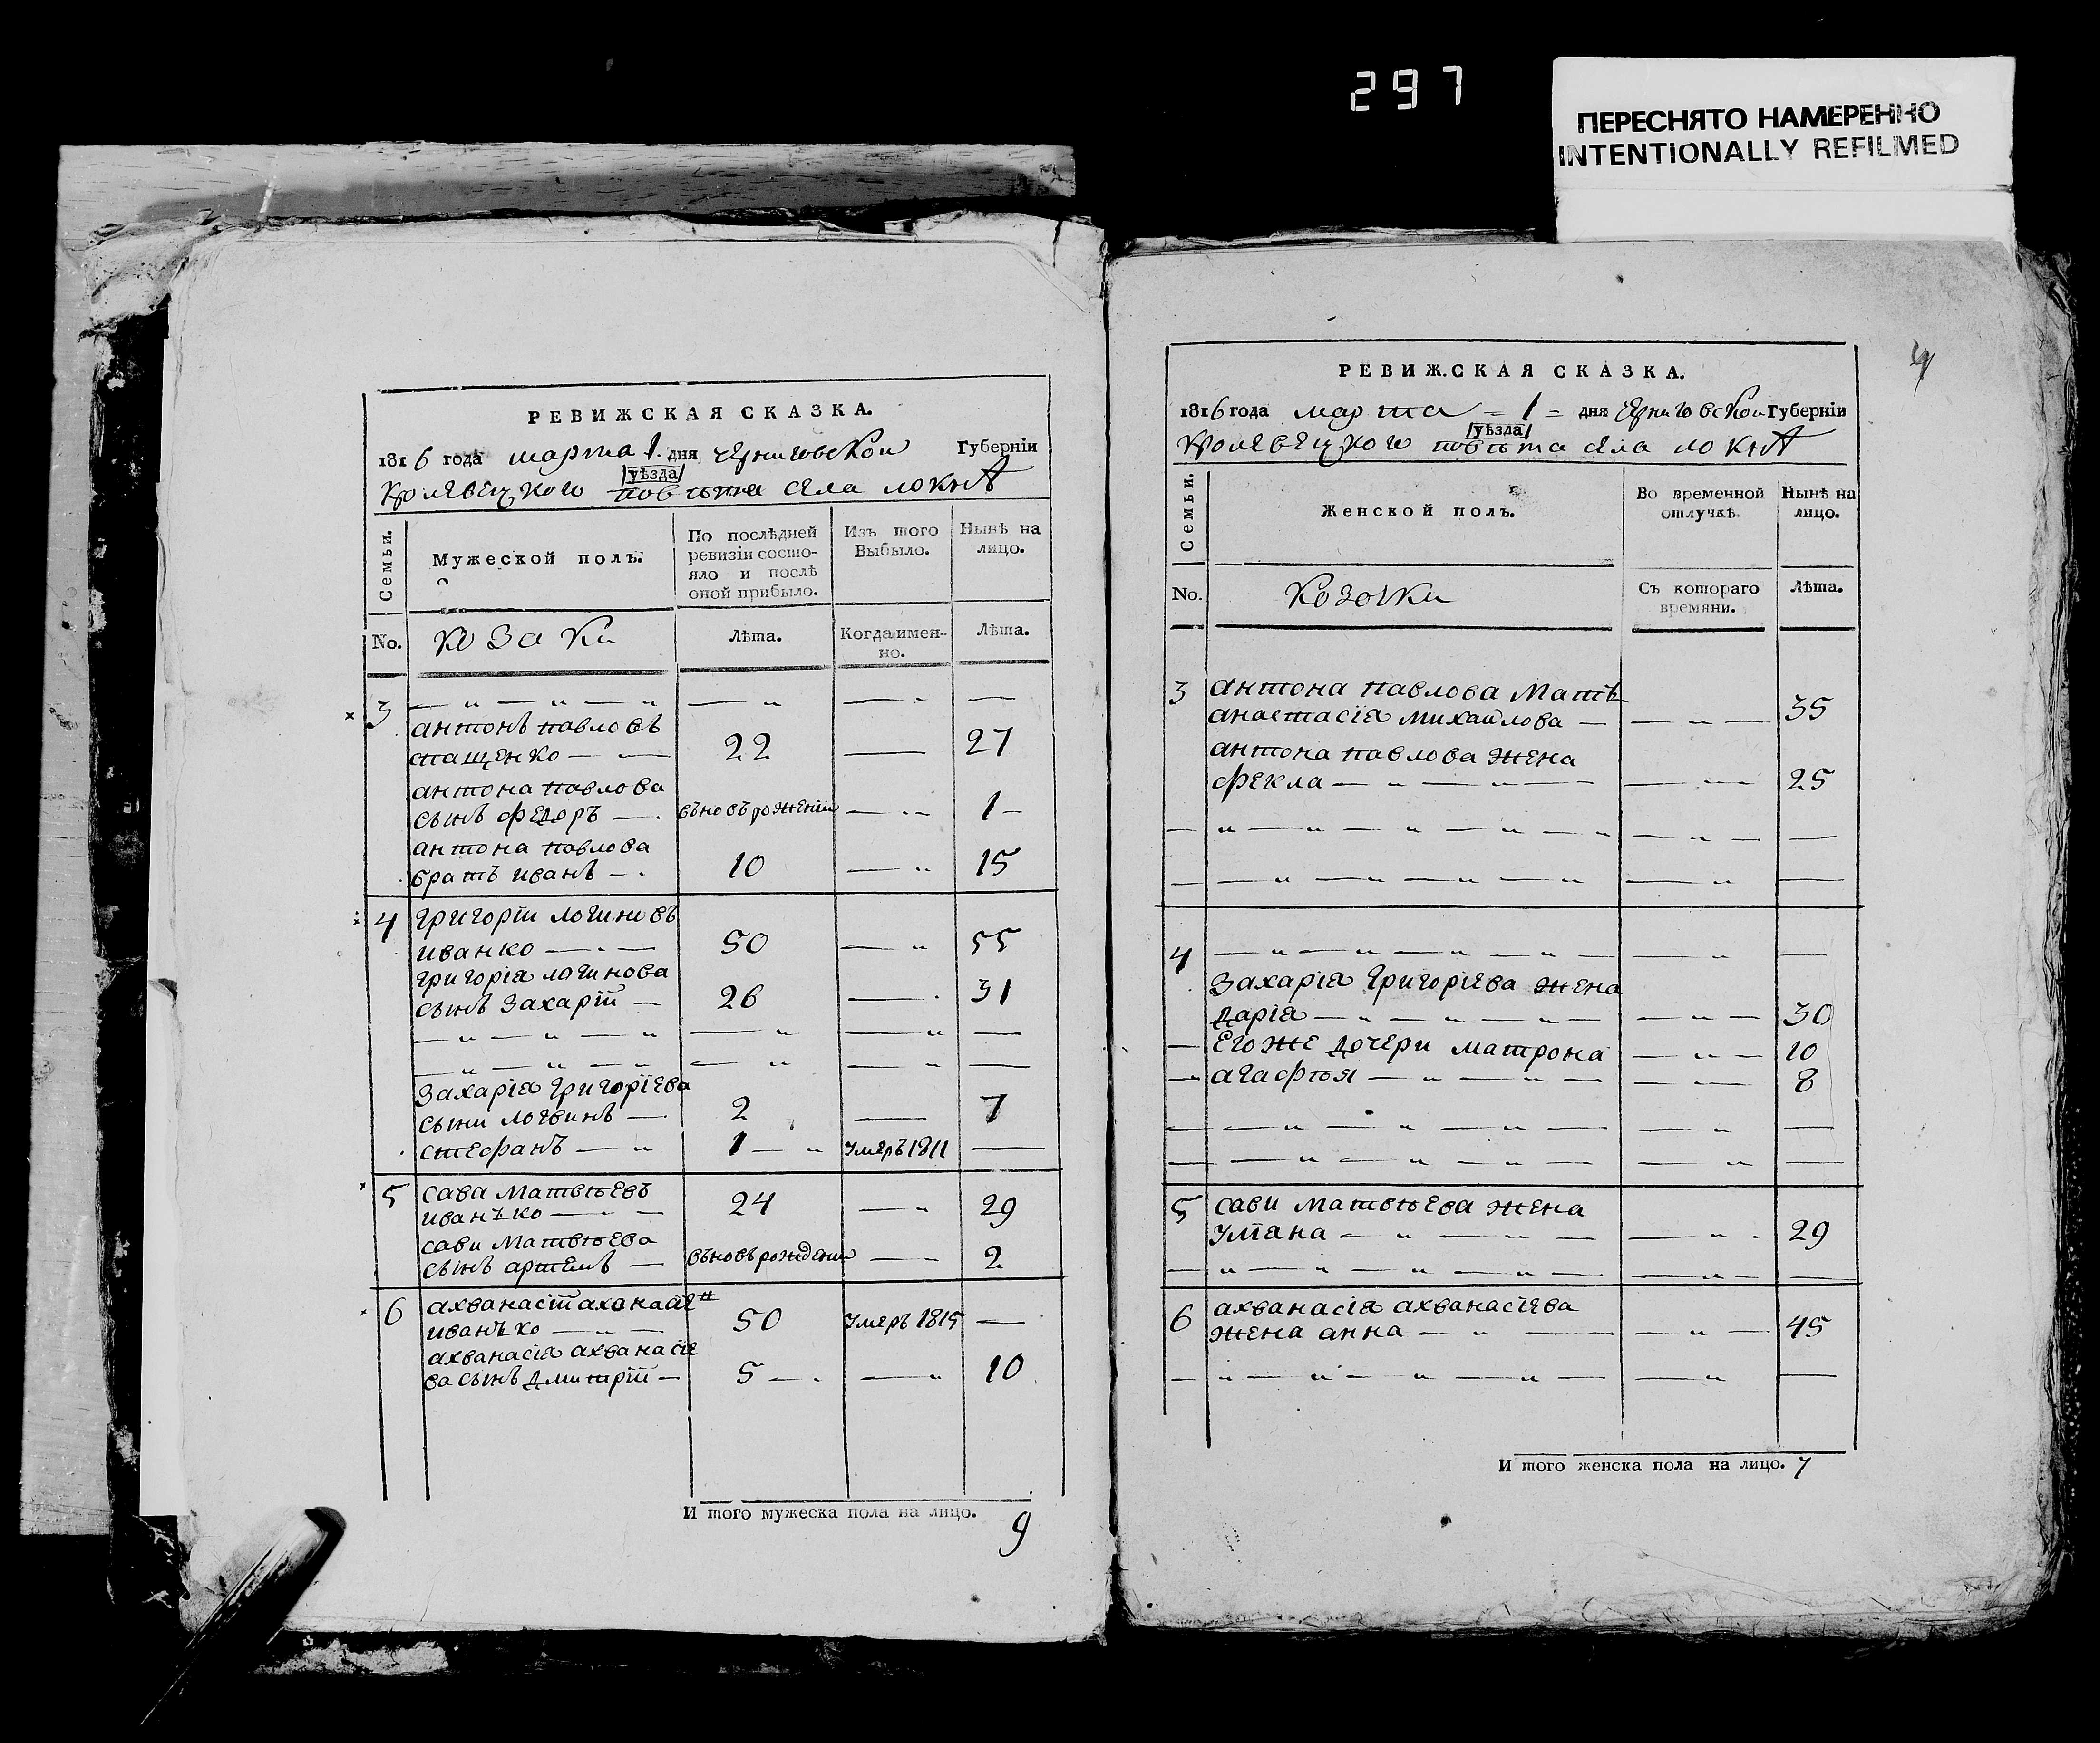 297
ПЕРЕСНЯТО НАМЕРЕННО
INTENTIONALLY REFILMED
РЕВИЖСКАЯ СКАЗКА.
1816 года марта 1. дня черниговской Губернїи
/уѣзда/
Кролевецкого повѣта села локнѣ
Семьи.
Мужеской полъ.
По послѣдней ревизїи состо-
яло и послѣ
оной прибыло.
Изъ того
Выбыло.
Нынѣ на
лицо.
No.
козаки
Лѣта.
Когда имен-
но.
Лѣта.
3
антонъ павловъ
сташенко 22 27
антона павлова
сынъ федоръ вновъ рожденїи 1
антона павлова
братъ иванъ 10 15
4 григорїи логиновъ
иванко 50 55
григорїя логинова
сынъ захарїй 26 31
захарїя григорїева
сыни логвинъ 2 7
стефанъ 1 умеръ 1811
5 сава матвѣевъ 24 29
иванъко
сави матвѣева
сынъ артемъ въновъ рожденїи 2
6 ахванасїй ахванасїе
иванъко 50 умеръ 1815
ахванасїя ахванасїе
ва сынъ дмитрїй 5 10
И того мужеска пола на лицо. 9
4
РЕВИЖСКАЯ СКАЗКА.
1816 года марта 1 дня черниговской Губернїи
/уѣзда/
Кролевецкого повѣта села локнѣ
Семьи.
Женской полъ.
Во временной
отлучкѣ.
Нынѣ на
лицо.
No.
козачки
Съ котораго
времяни.
Лѣта.
3 антона павлова мать
анастасїя михайлова 35
антона павлова жена
фекла 25
4
захарїя григорїева жена
дарїя 30
его же дочери матрона 10
агафья 8
5 сави матвѣева жена
улїана 29
6 ахванасїя ахванасїева
жена анна 45
И того женска пола на лицо. 7